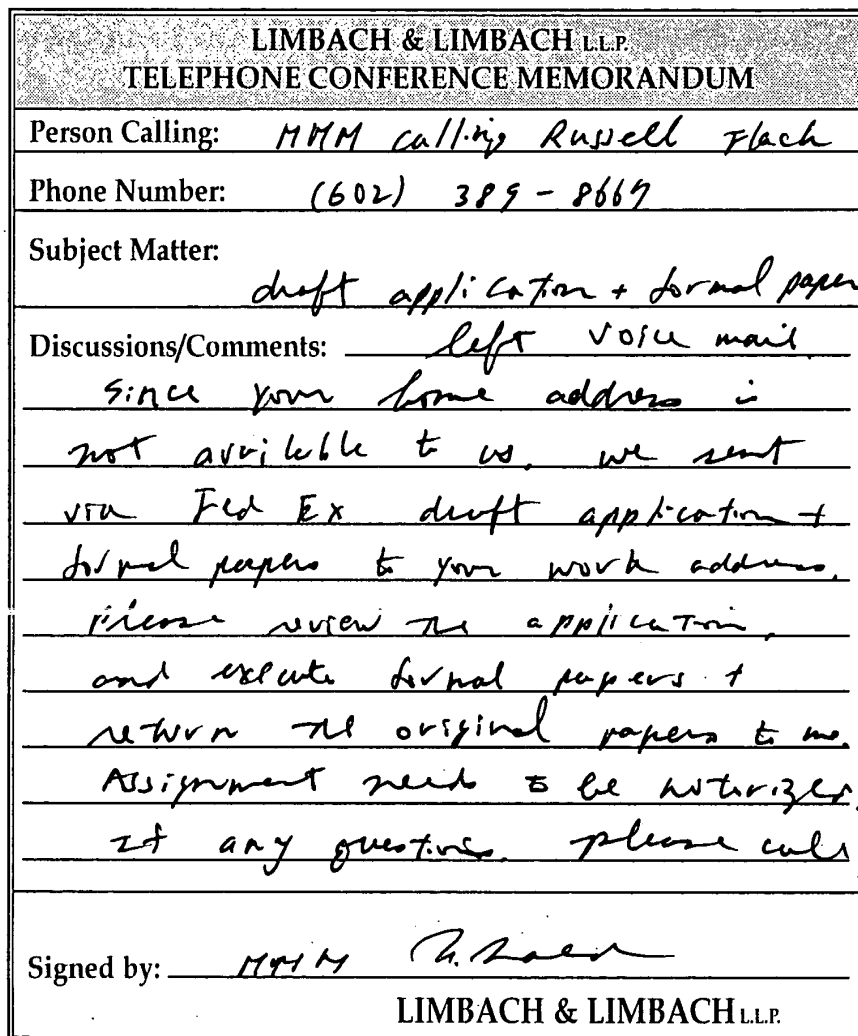 LIMBACH & LIMBACH L.L.P.
TELEPHONE CONFERENCE MEMORANDUM
Person Calling: MMM calling Russell Flach
Phone Number: (602) 389-8669
Subject Matter:
draft application + formal paper
Discussions/Comments: left voice mail
Since your home address is
not available to us, we sent
via Fed Ex draft application +
formal papers to your work address.
Please review the application,
and execute formal papers +
return the original papers to me.
Assignment needs to be notarized.
If any questions, please call
Signed by: MMM
LIMBACH & LIMBACH L.L.P.